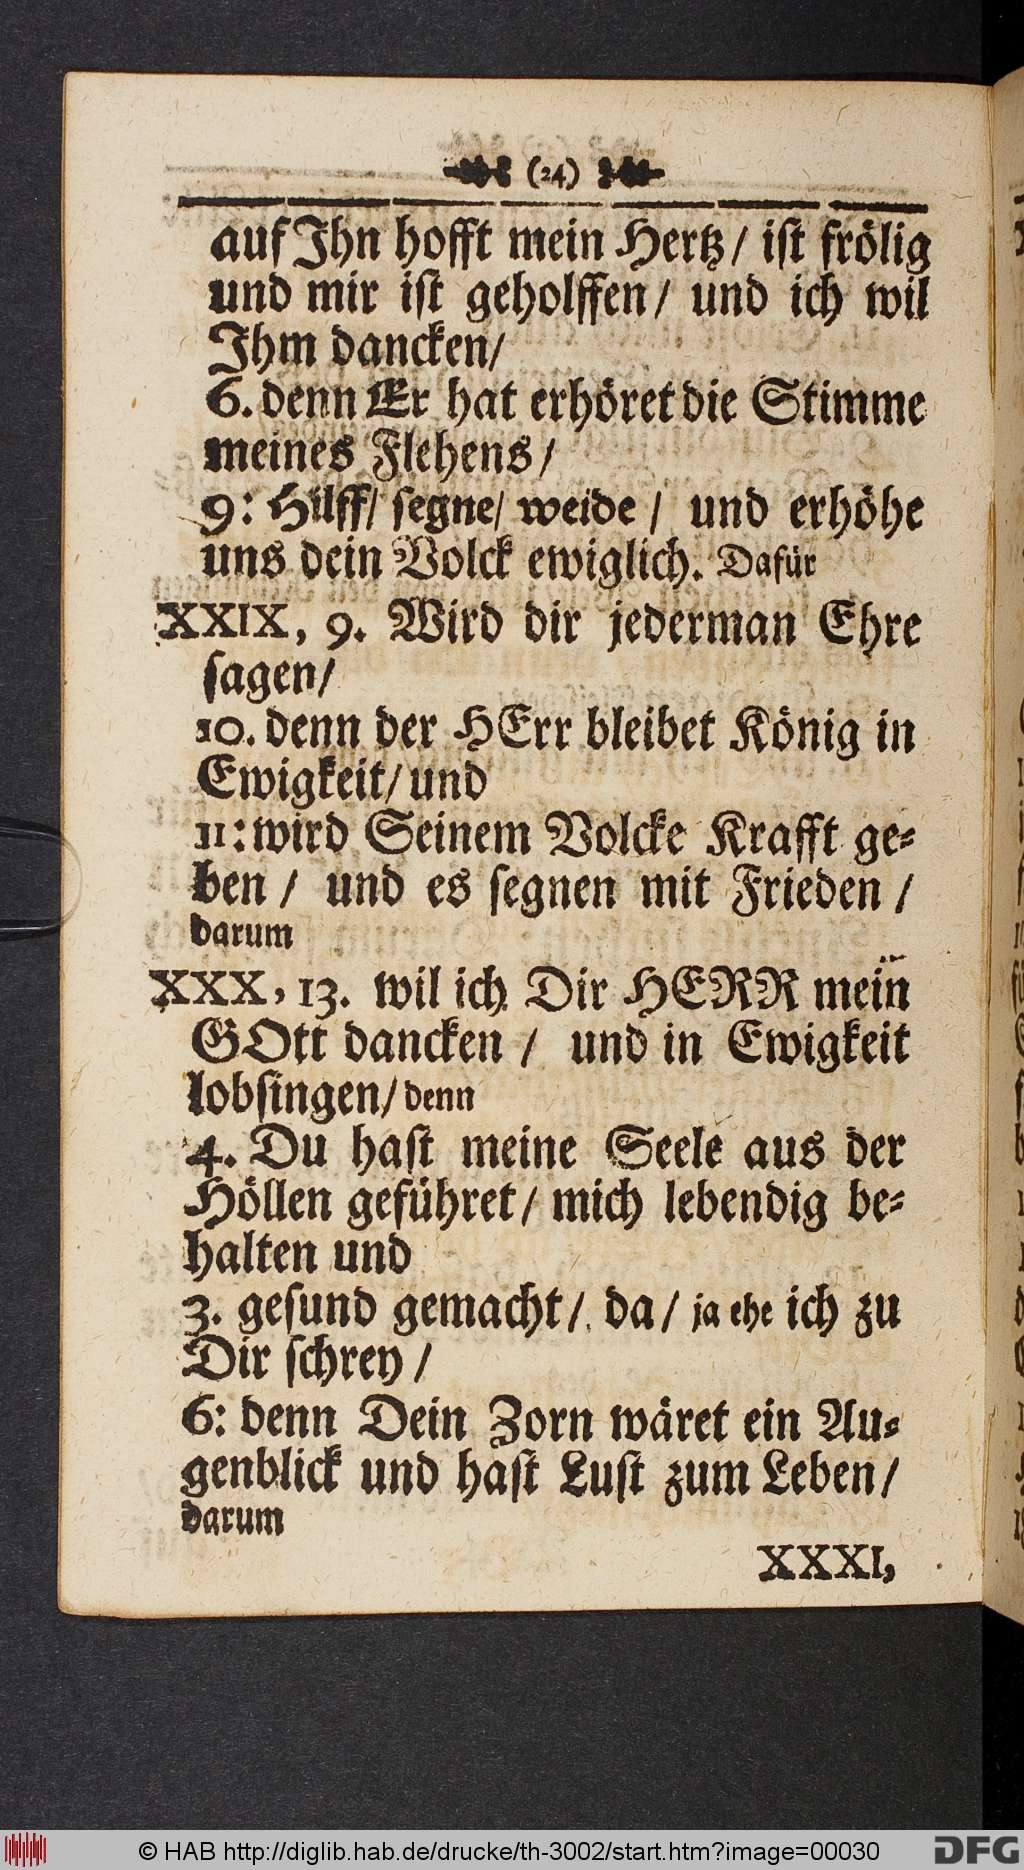 (24)
auf Ihn hofft mein Hertz/ ist frölig
und mir ist geholffen/ und ich wil
Ihm dancken/
6. denn Er hat erhöret die Stimme
meines Flehens/
9: Hilff/ segne/ weide / und erhöhe
uns dein Volck ewiglich. Dafür
XXIX, 9. Wird dir jederman Ehre
sagen/
10. denn der HErr bleibet König in
Ewigkeit/ und
11: wird Seinem Volcke Krafft ge-
ben / und es segnen mit Frieden /
darum
XXX, 13. wil ich Dir HERR mein
GOtt dancken / und in Ewigkeit
lobsingen/ denn
4. Du hast meine Seele aus der
Höllen geführet/ mich lebendig be-
halten und
3. gesund gemacht/ da/ ja ehe ich zu
Dir schrey /
6: denn Dein Zorn wäret ein Au-
genblick und hast Lust zum Leben/
darum
XXXI,
© HAB http://diglib.hab.de/drucke/th-3002/start.htm?image=00030
DFG